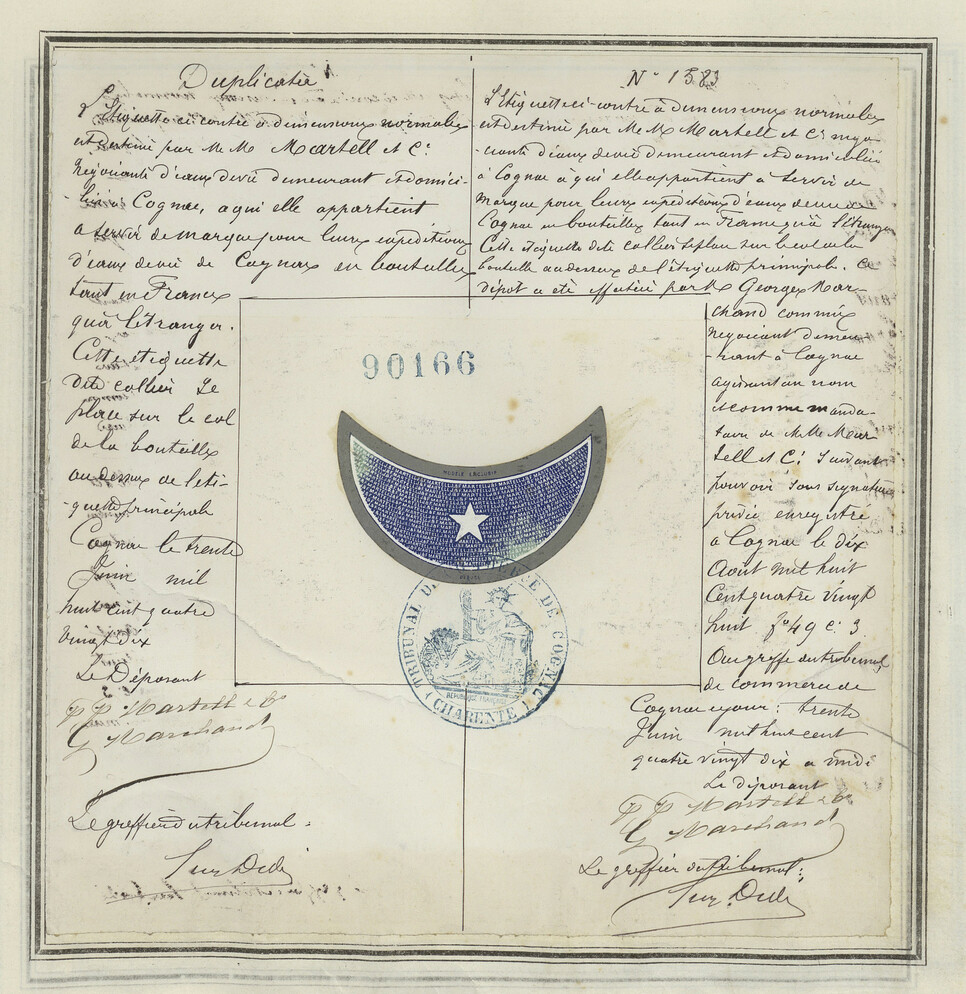 Duplicata
L'Etiquette ci contre à dimensions normales
est destiné par M.M. Martell et Cie
Négociants d'eaux de vie demeurant et domici-
-liés à Cognac, a qui elle appartient
a servir de marque pour leurs expéditions
d'eaux de vie de Cognac en bouteilles
tant en France
qu'à l'étranger.
Cette etiquette
dite collier se
place sur le col
de la bouteille
au dessus de l'eti-
-quette principale
Cognac le trente
Juin mil
huit cent quatre
vingt dix
Le Déposant
P.P. Martell & Co
G Marchand
Le greffier du tribunal.
N° 1583
L'Etiquette ci contre à dimensions normales
est destiné par M.M. Martell et Cie négo
-ciants d'eaux de vie demeurant et domiciliés
à Cognac à qui elle appartient a servir de
marque pour leurs expéditions d'eaux de vie de
Cognac en bouteilles tant en France qu'à l'étranger
Cette etiquette dite collier se place sur le col de la
bouteille au dessus de l'étiquette principale. Ce
dépot a été effectué par M Georges Mar-
chand commis
négociant demeu-
-rant à Cognac
agissant au nom
et comme manda-
taire de M.M. Mar-
tell et Cie suivant
pouvoir sous signature
privée enregistré
a Cognac le dix
Aout mil huit
cent quatre vingt
huit fo 49 c. 3.
Au greffe du tribunal
de commerce de
Cognac ce jour: trente
Juin mil huit cent
quatre vingt dix a midi
Le déposant
P.P. Martell & Co
G Marchand
Le greffier du tribunal:
90166
MODÈLE EXCLUSIF
TRIBUNAL DE COMMERCE DE COGNAC
RÉPUBLIQUE FRANÇAISE
(CHARENTE)